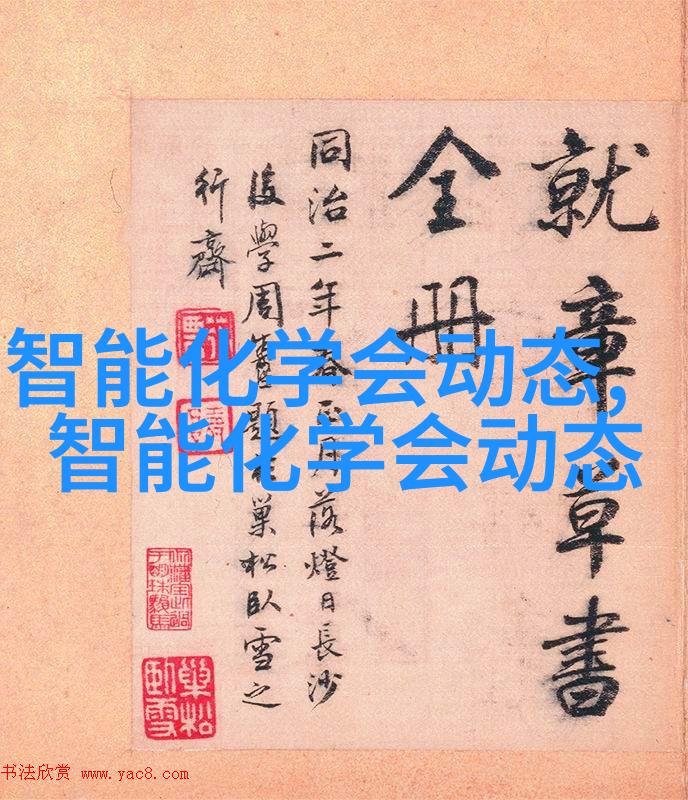 就章草書
全冊
同治二年春正月落燈日長沙
後學周題於巢松臥雪之
行齋
巢松臥雪
智能化学会动态,
智能化学会动态
书法欣赏 www.yac8.com